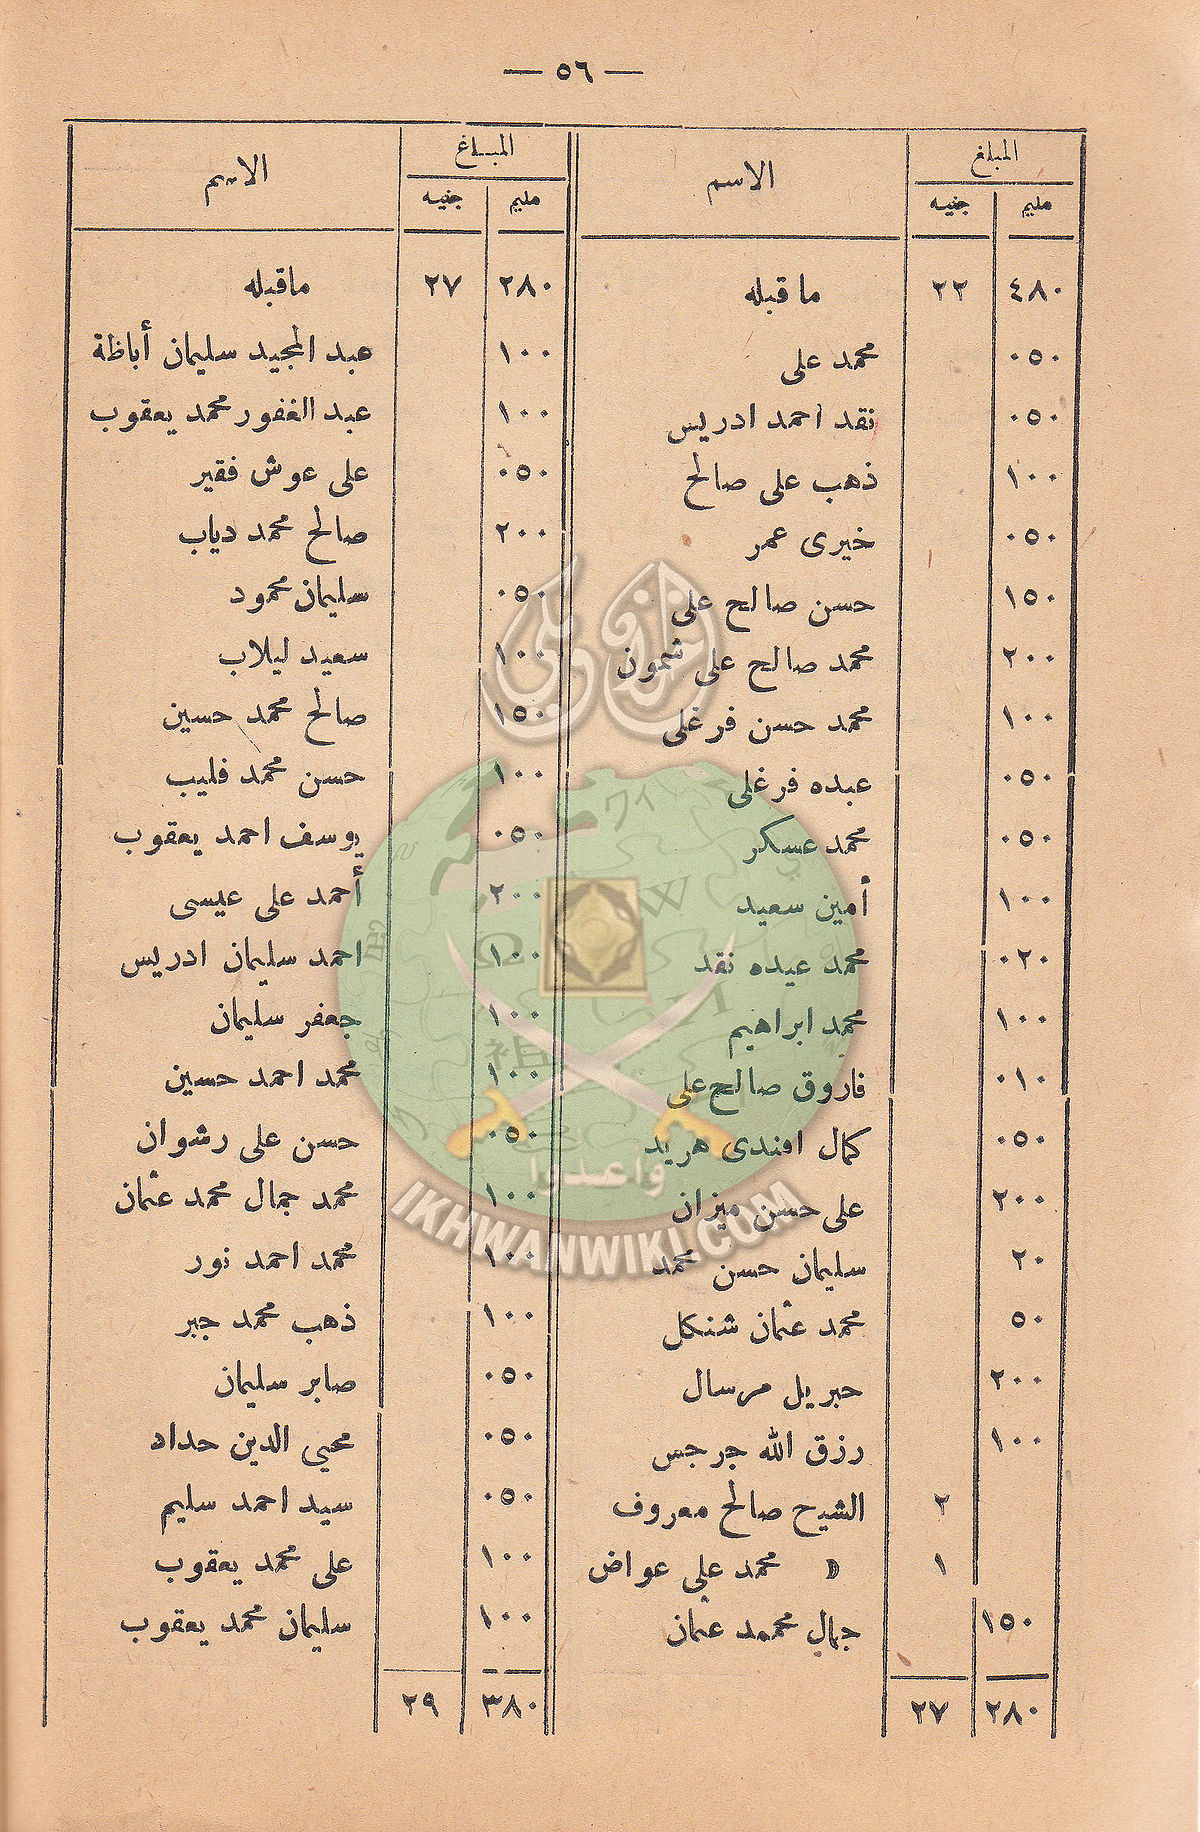 — ٥٦ —
المبلغ الاسم
مليم جنيه
٤٨٠ ٢٢ ما قبله
٠٥٠ محمد على
٠٥٠ نقد احمد ادريس
١٠٠ ذهب على صالح
٠٥٠ خيرى عمر
١٥٠ حسن صالح على
٢٠٠ محمد صالح على شمون
١٠٠ محمد حسن فرغلى
٠٥٠ عبده فرغلى
٠٥٠ محمد عسكر
١٠٠ أمين سعيد
٠٢٠ محمد عيده نقد
١٠٠ محمد ابراهيم
٠١٠ فاروق صالح على
٠٥٠ كمال افندى هريد
٢٠٠ على حسن ميزان
٢٠ سليمان حسن محمد
٥٠ محمد عثمان شنكل
٢٠٠ جبريل مرسال
١٠٠ رزق الله جرجس
٢ الشيح صالح معروف
١ » محمد على عواض
١٥٠ جمال محمد عثمان
٢٨٠ ٢٧
المبلغ الاسم
مليم جنيه
٢٨٠ ٢٧ ماقبله
١٠٠ عبد المجيد سليمان أباظة
١٠٠ عبد الغفور محمد يعقوب
٠٥٠ على عوش فقير
٢٠٠ صالح محمد دياب
٠٥٠ سليمان محمود
١٠٠ سعيد ليلاب
١٥٠ صالح محمد حسين
١٠٠ حسن محمد فليب
٠٥٠ يوسف احمد يعقوب
٢٠٠ أحمد على عيسى
١٠٠ احمد سليمان ادريس
١٠٠ جعفر سليمان
١٠٠ محمد احمد حسين
٠٥٠ حسن على رشوان
١٠٠ محمد جمال محمد عثمان
١٠٠ محمد احمد نور
١٠٠ ذهب محمد جبر
٠٥٠ صابر سليمان
٠٥٠ محيى الدين حداد
٠٥٠ سيد احمد سليم
١٠٠ على محمد يعقوب
١٠٠ سليمان محمد يعقوب
٣٨٠ ٢٩
واعدوا
IKHWANWIKI.COM